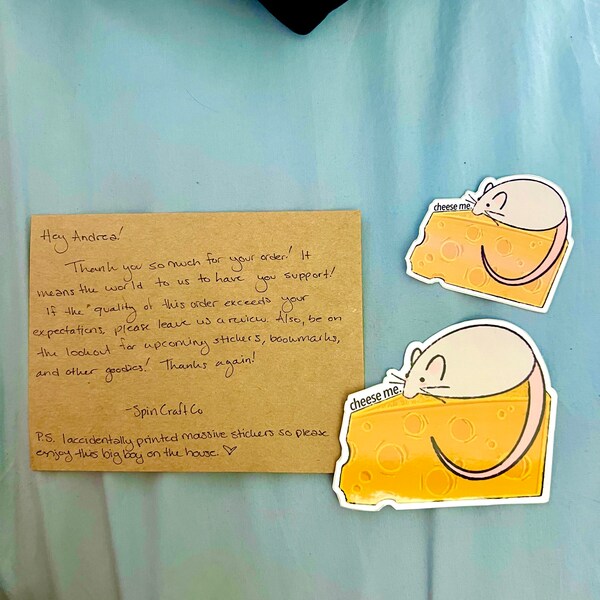 Hey Andrea!
Thank you so much for your order! It
means the world to us to have you support!
If the quality of this order exceeds your
expectations, please leave us a review. Also, be on
the lookout for upcoming stickers, bookmarks,
and other goodies! Thanks again!
-Spin Craft Co
P.S. I accidentally printed massive stickers so please
enjoy this big boy on the house. ♡
cheese me.
cheese me.